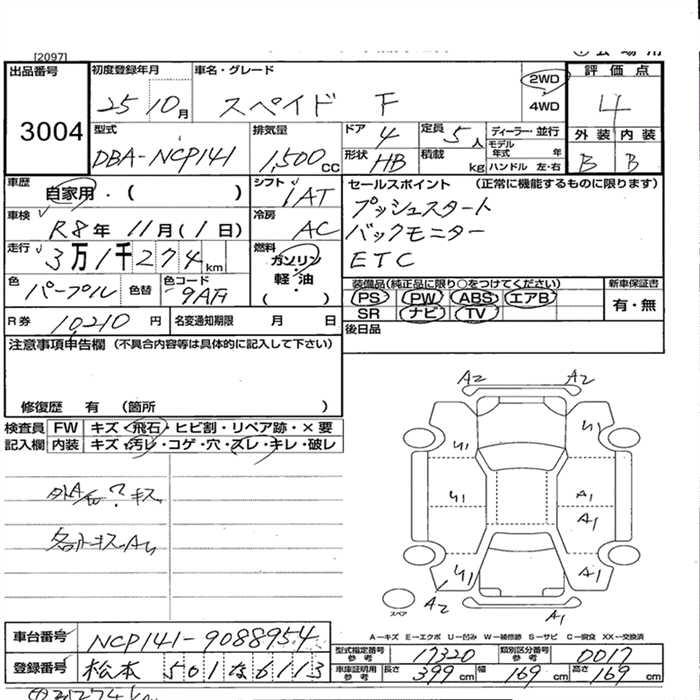 [2097]
出品番号
3004
初度登録年月
25 10月
車名・グレード
スペイド F
2WD
4WD
評価点
4
外装 内装
B B
型式
DBA-NCP141
排気量
1,500cc
ドア
4
定員
5人
形状
HB
積載
kg
ディーラー・並行
モデル年式 年
ハンドル 左・右
車歴
自家用・( )
シフト
IAT
車検
R8年 11月(1日)
冷房
AC
走行
3万1千274km
燃料
ガソリン
軽油
( )
色
パープル
色替
色コード
9AH
R券
10,210円
名変通知期限 月 日
セールスポイント (正常に機能するものに限ります)
プッシュスタート
バックモニター
ETC
装備品(純正品に限り○をつけてください)
PS PW ABS エアB
SR ナビ TV
新車保証書
有・無
後日品
注意事項申告欄 (不具合内容等は具体的に記入して下さい)
修復歴 有 (箇所 )
検査員 FW キズ・飛石・ヒビ割・リペア跡・×要
記入欄 内装 キズ・汚レ・コゲ・穴・スレ・キレ・破レ
キス
A2 A2
U1 U1
U1 A1
A1
U1 A1
A2 A1
スペア
A−キズ E−エクボ U−凹み W−補修跡 S−サビ C−腐食 XX−交換済
車台番号
NCP141-9088954
登録番号
松本 501 な 6113
型式指定番号
参考
17320
類別区分番号
参考
0017
車庫証明用
参考
長さ 399cm 幅 169cm 高さ 169cm